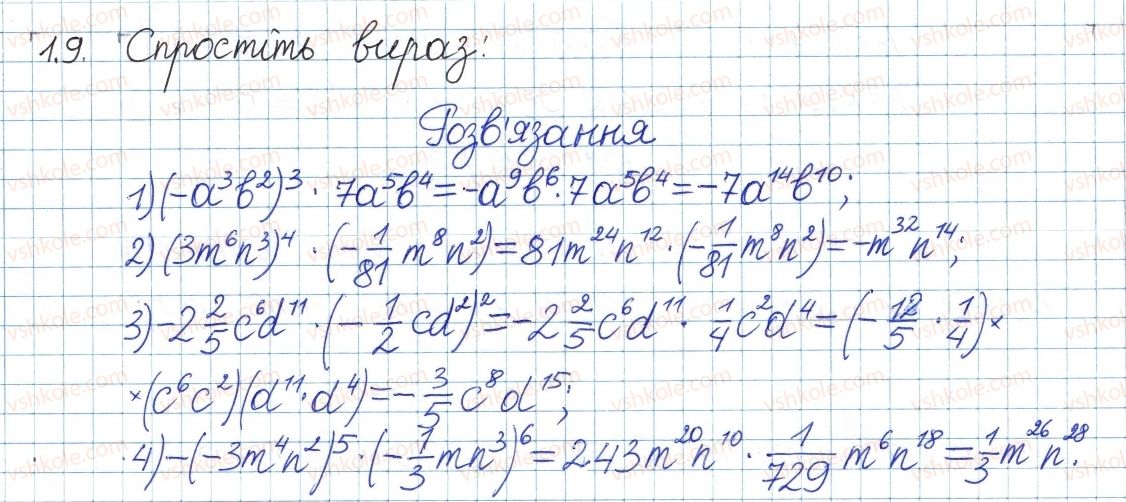 1.9. Спростіть вираз:
Розв'язання
1) (-a³b²)³ · 7a⁵b⁴ = -a⁹b⁶ · 7a⁵b⁴ = -7a¹⁴b¹⁰;
2) (3m⁶n³)⁴ · (-1/81 m⁸n²) = 81m²⁴n¹² · (-1/81 m⁸n²) = -m³²n¹⁴;
3) -2 2/5 c⁶d¹¹ · (-1/2 cd²)² = -2 2/5 c⁶d¹¹ · 1/4 c²d⁴ = (-12/5 · 1/4) ×
× (c⁶c²)(d¹¹ · d⁴) = -3/5 c⁸d¹⁵;
4) -(-3m⁴n²)⁵ · (-1/3 mn³)⁶ = 243m²⁰n¹⁰ · 1/729 m⁶n¹⁸ = 1/3 m²⁶n²⁸.
vshkole.com